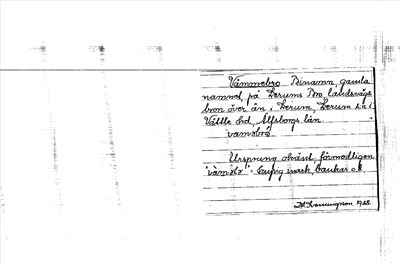 Vämmebro Binamn, gamla
namnet på Lerums Bro, landsvägs
bron över ån i Lerum, Lerum s:n i
Vättle hd Älfsborgs län.
vamobro
Ursprung okänt, förmodligen
mark, bankar o.d.
1928.